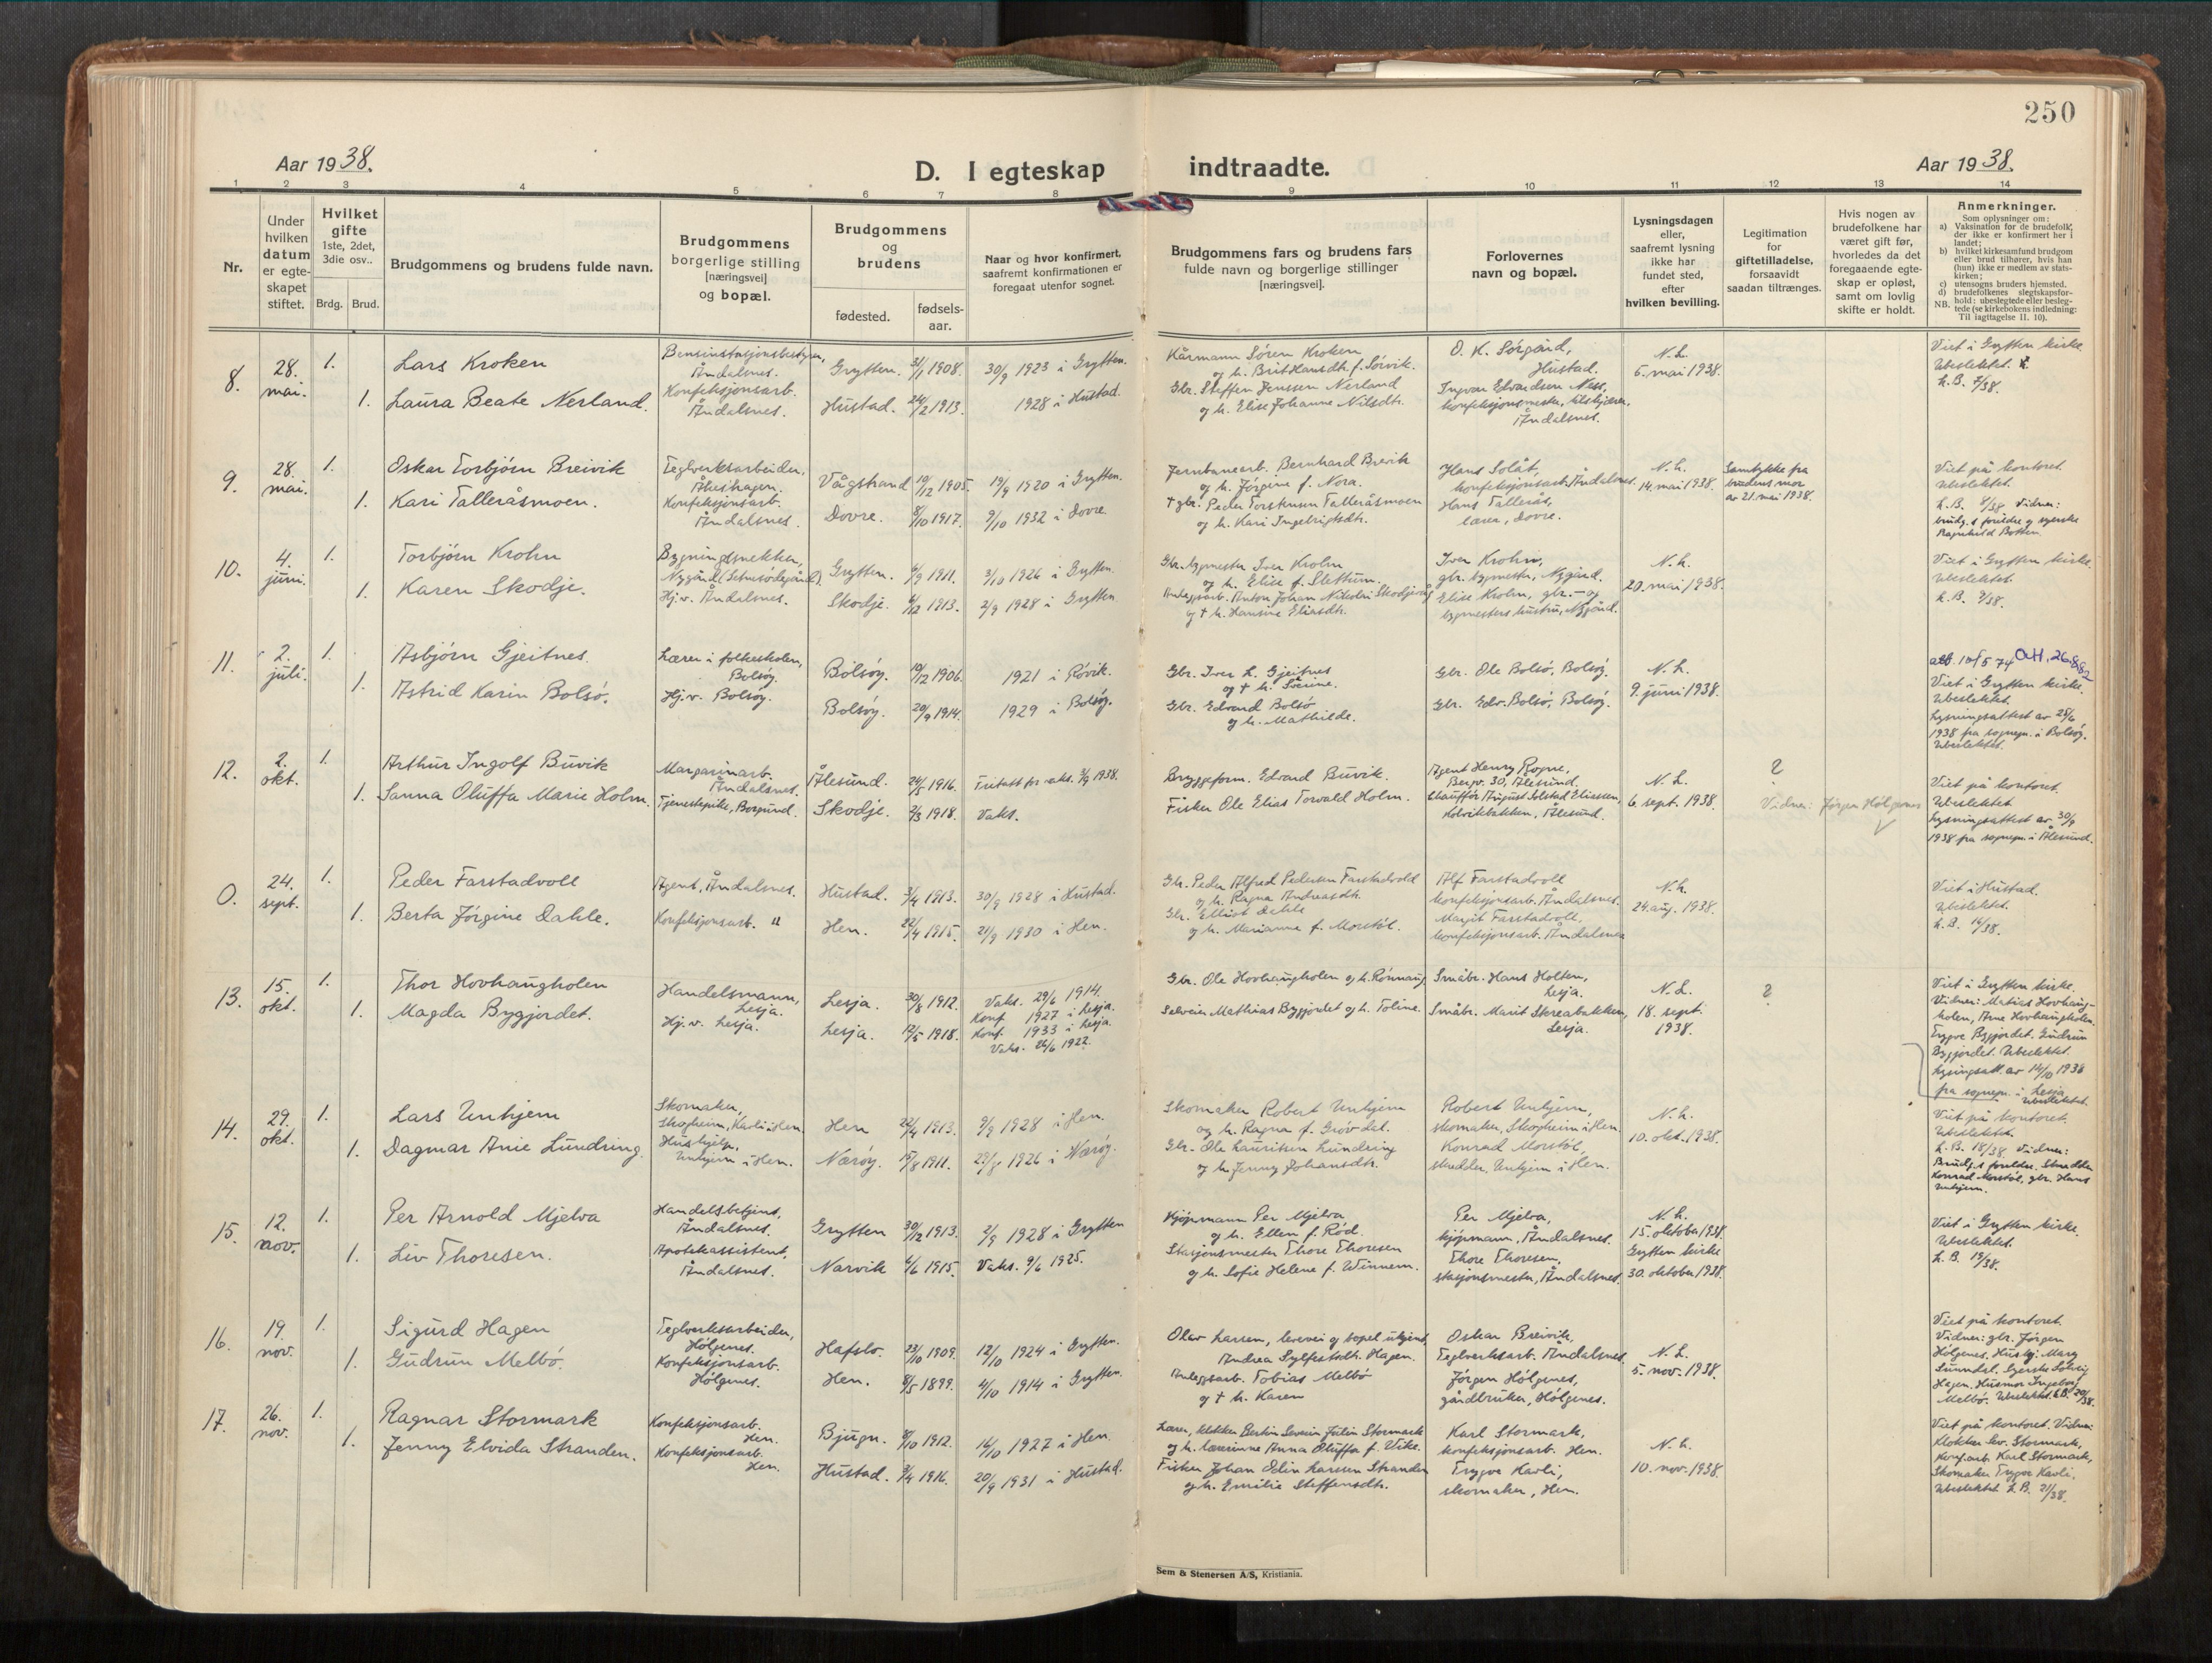 250
Aar 1938.
D. I egteskap indtraadte.
Aar 1938.
1 2 3 4 5 6 7 8 9 10 11 12 13 14
Nr.
Under hvilken datum er egteskapet stiftet.
Hvilket gifte 1ste, 2det, 3die osv..
Brdg. Brud.
Brudgommens og brudens fulde navn.
Brudgommens borgerlige stilling [næringsvei] og bopæl.
Brudgommens og brudens
fødested.
fødsels-aar.
Naar og hvor konfirmert, saafremt konfirmationen er foregaat utenfor sognet.
Brudgommens fars og brudens fars fulde navn og borgerlige stillinger [næringsvei].
Forlovernes navn og bopæl.
Lysningsdagen eller, saafremt lysning ikke har fundet sted, efter hvilken bevilling.
Legitimation for giftetilladelse, forsaavidt saadan tiltrænges.
Hvis nogen av brudefolkene har været gift før, hvorledes da det foregaaende egteskap er opløst, samt om lovlig skifte er holdt.
Anmerkninger.
Som oplysninger om:
a) Vaksination for de brudefolk, der ikke er konfirmert her i landet;
b) hvilket kirkesamfund brudgom eller brud tilhører, hvis han (hun) ikke er medlem av statskirken;
c) utensogns bruders hjemsted.
d) brudefolkenes slegtskapsforhold: ubeslegtede eller beslegtede (se kirkebokens indledning: Til iagttagelse II. 10).
NB.
8. 28. mai. 1. Lars Kroken
Bensinstasjonsbestyrer, Åndalsnes.
Grytten. 31/1 1908. 30/9 1923 i Grytten.
Kårmann Sören Kroken og h. Brit Hansdtr. f. Sörvik.
O. K. Sörgård, Hustad.
N.L. 5. mai 1938.
Viet i Grytten kirke. Ubeslektet. L.B. 7/38.
1. Laura Beate Nerland.
Konfeksjonsarb. Åndalsnes.
Hustad. 24/2 1913. 1928 i Hustad.
Gbr. Steffen Jenssen Nerland og h. Elise Johanne Nilsdtr.
Ingvar Edvardsen Ness, konfeksjonsmester, Åndalsnes.
9. 28. mai. 1. Oskar Torbjörn Breivik
Teglverksarbeider,
Vågstrand 19/12 1905. 19/9 1920 i Grytten.
Jernbanearb. Bernhard Breivik og h. Jörgine f. Nora.
Hans Solåt, konfeksjonsarb. Åndalsnes.
N.L. 14. mai 1938.
Samtykke fra brudens mor av 21. mai 1938.
Viet på kontoret. Ubeslektet. L.B. 8/38. Vidner: brudg.s foreldre og syerske Ragnhild Botten.
1. Kari Talleråsmoen.
Konfeksjonsarb. Åndalsnes.
Dovre. 8/10 1917. 9/10 1932 i Dovre.
† gbr. Peder Torstensen Talleråsmoen og h. Kari Ingebrigtsdtr.
Hans Tallerås, lærer, Dovre.
10. 4. juni. 1. Torbjörn Krohn
Bygningssnekker, Nygård
Grytten. 4/9 1911. 3/10 1926 i Grytten.
Gbr. bygmester Iver Krohn og h. Elise f. Slettum.
Iver Krohn, gbr. bygmester, Nygård.
N.L. 20. mai 1938.
Viet i Grytten kirke. Ubeslektet. L.B. 9/38.
1. Karen Skodje.
Hj.v. Åndalsnes.
Skodje. 6/12 1913. 2/9 1928 i Grytten
Anleggsarb. Anton Johan Nikolai Skodje og † h. Hansine Eliasdtr.
Elise Krohn, gbr.- og bygmesters hustru, Nygård.
11. 2. juli. 1. Asbjörn Gjeitnes.
Lærer i folkeskolen, Bolsöy.
Bolsöy. 19/12 1906. 1921 i Rövik.
Gbr. Iver L. Gjeitnes og † h. Sörine.
Gbr. Ole Bolsö, Bolsöy.
N.L. 9. juni 1938.
att. 10/5 74 O.H, 26.8.82
Viet i Grytten kirke. Ubeslektet. Lysningsattest av 25/6 1938 fra sognepr. i Bolsöy. Ubeslektet.
1. Astrid Karin Bolsö.
Hj.v. Bolsöy.
Bolsöy. 20/9 1914. 1929 i Bolsöy.
Gbr. Edvard Bolsö og h. Mathilde.
Gbr. Edv. Bolsö, Bolsöy.
12. 2. okt. 1. Arthur Ingolf Buvik
Margarinarb. Åndalsnes.
Ålesund. 24/5 1916. Fritatt for vaks. 3/9 1938.
Bryggeform. Edvard Buvik.
Agent Henry Rogne, Bergv. 30, Ålesund.
N.L. 6. sept. 1938.
?
Vidner: Jörgen Hölgenes
Viet på kontoret. Ubeslektet Lysningsattest av 30/9 1938 fra sognepr. i Ålesund.
1. Sanna Oluffa Marie Holm.
Tjenestepike, Borgund.
Skodje. 2/3 1918. Vaks.
Fisker Ole Elias Torvald Holm.
Chauffør August Solstad Eliassen, Kolvikbakken, Ålesund.
0. 24. sept. 1. Peder Farstadvoll
Agent, Åndalsnes.
Hustad. 3/4 1913. 30/9 1928 i Hustad.
Gbr. Peder Alfred Pedersen Farstadvold og h. Ragna Andreasdtr.
Alf Farstadvoll konfeksjonsarb. Åndalsnes.
N.L. 24. aug. 1938.
Viet i Hustad. Ubeslektet. L.B. 14/38.
1. Berta Jörgine Dahle.
Konfeksjonsarb. "
Hen. 22/4 1915. 21/9 1930 i Hen.
Gbr. Elling Dahle og h. Marianne f. Morstöl.
Margit Farstadvoll, konfeksjonsarb. Åndalsnes
13. 15. okt. 1. Thor Hovhaugholen
Handelsmann, Lesja.
Lesja. 30/8 1912. Vaks. 29/6 1914. Konf 1927 i Lesja.
Gbr. Ole Hovhaugholen og h. Rönnaug.
Småbr. Hans Holten, Lesja.
N.L. 18. sept. 1938.
?
Viet i Grytten kirke. Vidner: Matias Hovhaugholen, Arne Hovhaugholen. Trygve Byggjordet. Gudrun Byggjordet. Ubeslektet. Lysingsatt. av 14/10 1938 fra sognepr. i Lesja. Ubeslektet.
1. Magda Byggjordet.
Hj.v. Lesja.
Lesja. 12/5 1918. Konf. 1933 i Lesja. Vaks. 26/6 1922.
Selveier Mathias Byggjordet og h. Toline.
Småbr. Marit Skreabakken, Lesja.
14. 29. okt. 1. Lars Unhjem
Skomaker, Skogheim, Kavli i Hen
Hen 22/4 1913. 9/9 1928 i Hen.
Skomaker Robert Unhjem og h. Ragna f. Grövdal.
Robert Unhjem, skomaker, Skogheim i Hen.
N.L. 10. okt. 1938.
Viet på kontoret. Ubeslektet. L.B. 18/38. Vidner: Brudg.s foreldre. Skredder Konrad Morstöl, gbr. Hans Unhjem.
1. Dagmar Anie Lundring.
Hushjelp, Unhjem i Hen.
Nærøy. 15/8 1911. 29/8 1926 i Nærøy.
Gbr. Ole Lauritsen Lundring og h. Jenny Johansdtr.
Konrad Morstöl, skredder, Unhjem i Hen.
15. 12. nov. 1. Per Arnold Mjelva
Handelsbetjent, Åndalsnes.
Grytten 30/12 1913. 2/9 1928 i Grytten
Kjöpmann Per Mjelva og h. Ellen f. Röd.
Per Mjelva, kjöpmann, Åndalsnes.
N.L. 15. oktober 1938. Grytten kirke 30. oktober 1938.
Viet i Grytten kirke. Ubeslektet. L.B. 19/38.
1. Liv Thoresen.
Apotekassistent, Åndalsnes.
Narvik 6/6 1915. Vaks. 9/6 1925.
Stasjonsmester Thore Thoresen og h. Sofie Helene f. Winnem.
Thore Thoresen, stasjonsmester, Åndalsnes.
16. 19. nov. 1. Sigurd Hagen
Teglverksarbeider, Hölgenes.
Hafslo. 23/10 1909. 12/10 1924 i Grytten.
Olav Larsen, levevei og bopel ukjent, Andrea Sylfestsdtr. Hagen.
Oskar Breivik, Teglverksarb. Åndalsnes.
N.L. 5. nov. 1938.
Viet på kontoret. Vidner: gbr. Jörgen Hölgenes. Hushj. Mary Sunndal. Syerske Solveig Hagen. Husmor Ingeborg Melbö. Ubeslektet L.B. 20/38.
1. Gudrun Melbö.
Konfeksjonsarb. Hölgenes.
Hen. 8/5 1899. 4/10 1914 i Grytten.
Anleggsarb. Tobias Melbö og † h. Karen
Jörgen Hölgenes, gårdbruker, Hölgenes.
17. 26. nov. 1. Ragnar Stormark
Konfeksjonsarb. Hen.
Bjugn. 8/10 1912. 16/10 1927 i Hen.
Lærer, klokker Bertin Severin Julin Stormark og h. lærerinne Anna Oluffa f. Vike.
Karl Stormark, konfeksjonsarb. Hen.
N.L. 10. nov. 1938.
Viet på kontoret. Vidner: Klokker Sev. Stormark, Konf.arb. Karl Stormark, Skomaker Trygve Kavli, Ubeslektet L.B. 21/38.
1. Jenny Elvida Stranden.
Konfeksjonsarb. Hen.
Hustad. 3/4 1916. 20/9 1931 i Hustad.
Fisker Johan Odin Larssen Stranden og h. Emilie Steffensdtr.
Trygve Kavli, skomaker, Hen.
Sem & Stenersen A/S, Kristiania.